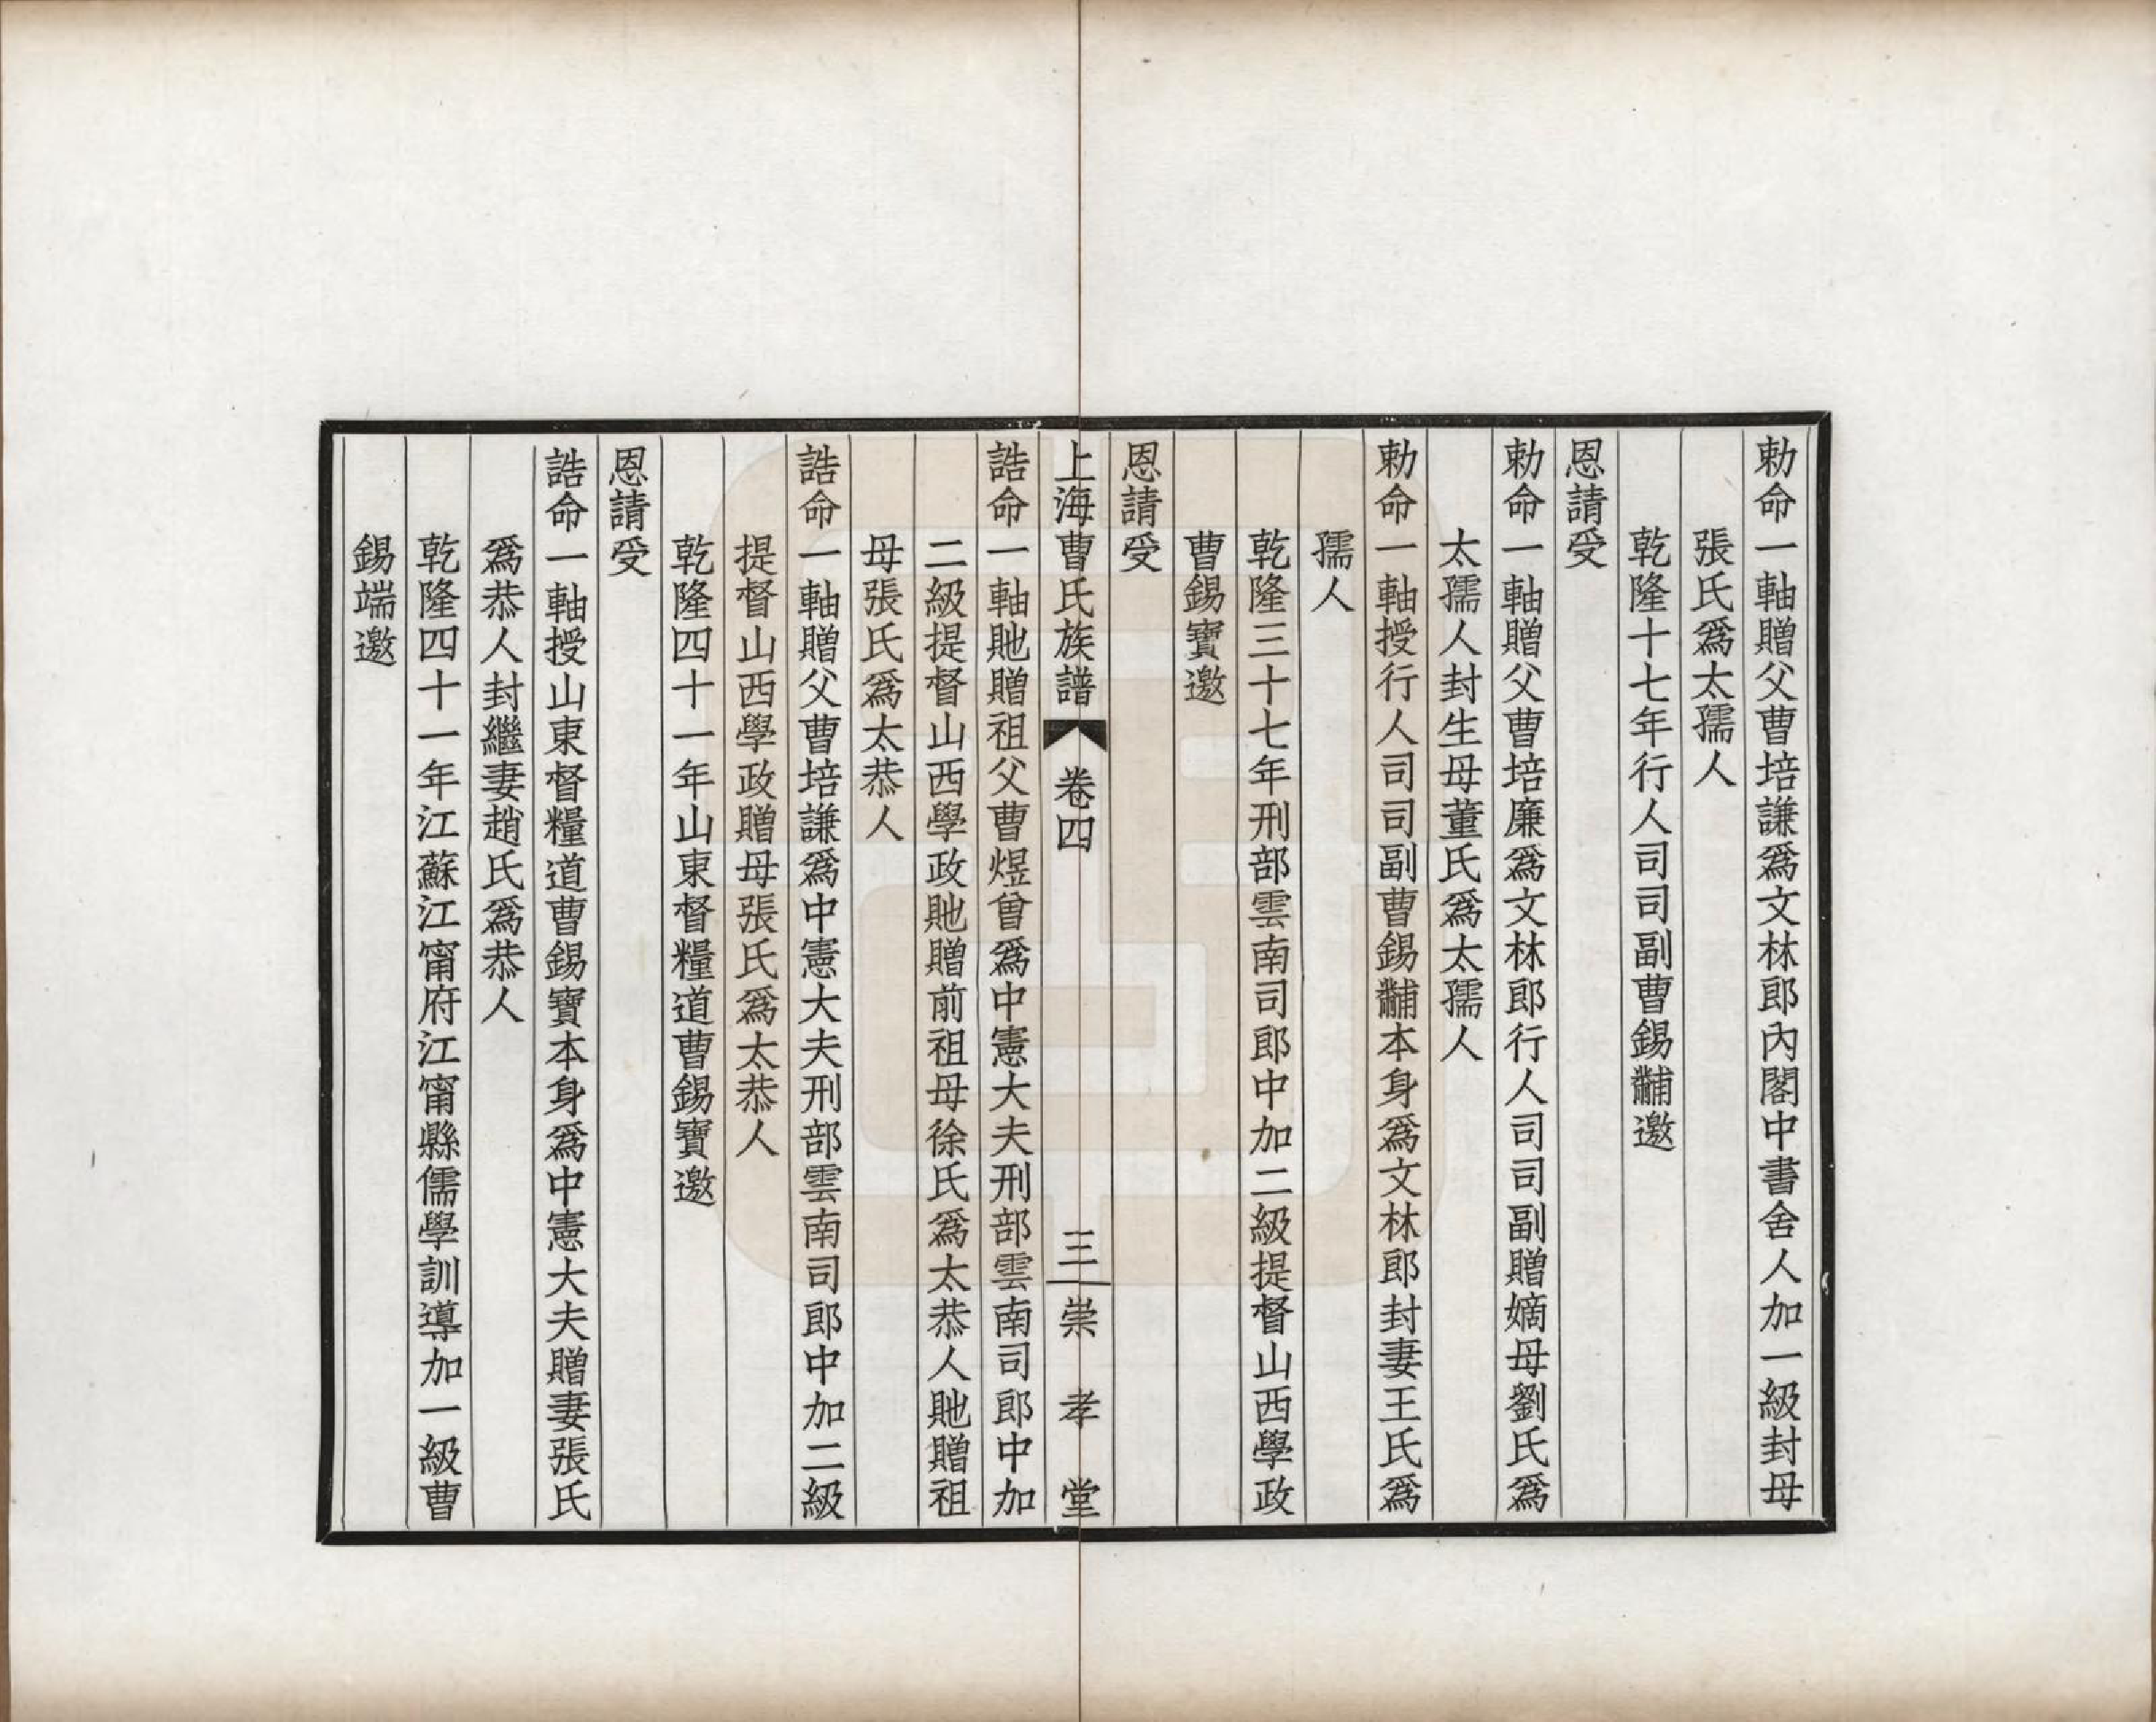 勅命一軸贈父曹培謙爲文林郎內閣中書舍人加一級封母
張氏爲太孺人
乾隆十七年行人司司副曹錫黼邀
恩請受
勅命一軸贈父曹培廉爲文林郎行人司司副贈嫡母劉氏爲
太孺人封生母董氏爲太孺人
勅命一軸授行人司司副曹錫黼本身爲文林郎封妻王氏爲
孺人
乾隆三十七年刑部雲南司郎中加二級提督山西學政
曹錫寶邀
恩請受
上海曹氏族譜 卷四 三 崇孝堂
誥命一軸貤贈祖父曹煜曾爲中憲大夫刑部雲南司郎中加
二級提督山西學政貤贈前祖母徐氏爲太恭人貤贈祖
母張氏爲太恭人
誥命一軸贈父曹培謙爲中憲大夫刑部雲南司郎中加二級
提督山西學政贈母張氏爲太恭人
乾隆四十一年山東督糧道曹錫寶邀
恩請受
誥命一軸授山東督糧道曹錫寶本身爲中憲大夫贈妻張氏
爲恭人封繼妻趙氏爲恭人
乾隆四十一年江蘇江甯府江甯縣儒學訓導加一級曹
錫端邀